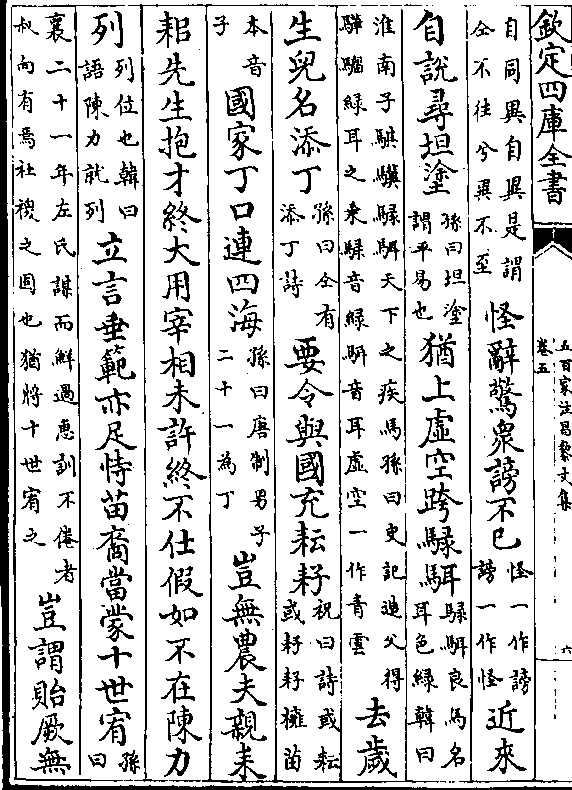 欽定四庫全書
五百家注昌黎文集
卷五
六
自同異自異是謂
仝不往兮異不至
怪辭驚衆謗不已
怪一作謗
謗一作怪
近來
自說尋坦塗
孫曰坦塗
謂平易也
猶上虛空跨騄駬
騄駬良馬名
耳色綠韓曰
淮南子騏驥騄駬天下之疾馬孫曰史記造父得
驊騮綠耳之乗騄音綠駬音耳虛空一作青雲
去歲
生兒名添丁
孫曰仝有
添丁詩
要令與國充耘耔
祝曰詩或耘
或耔耔擁苗
本音
子
國家丁口連四海
孫曰唐制男子
二十一為丁
豈無農夫親耒
耜先生抱才終大用宰相未許終不仕假如不在陳力
列
列位也韓曰
語陳力就列
立言垂範亦足恃苗裔當蒙十世宥
孫
曰
襄二十一年左氏謀而鮮過惠訓不倦者
叔向有焉社稷之固也猶將十世宥之
豈謂貽厥無